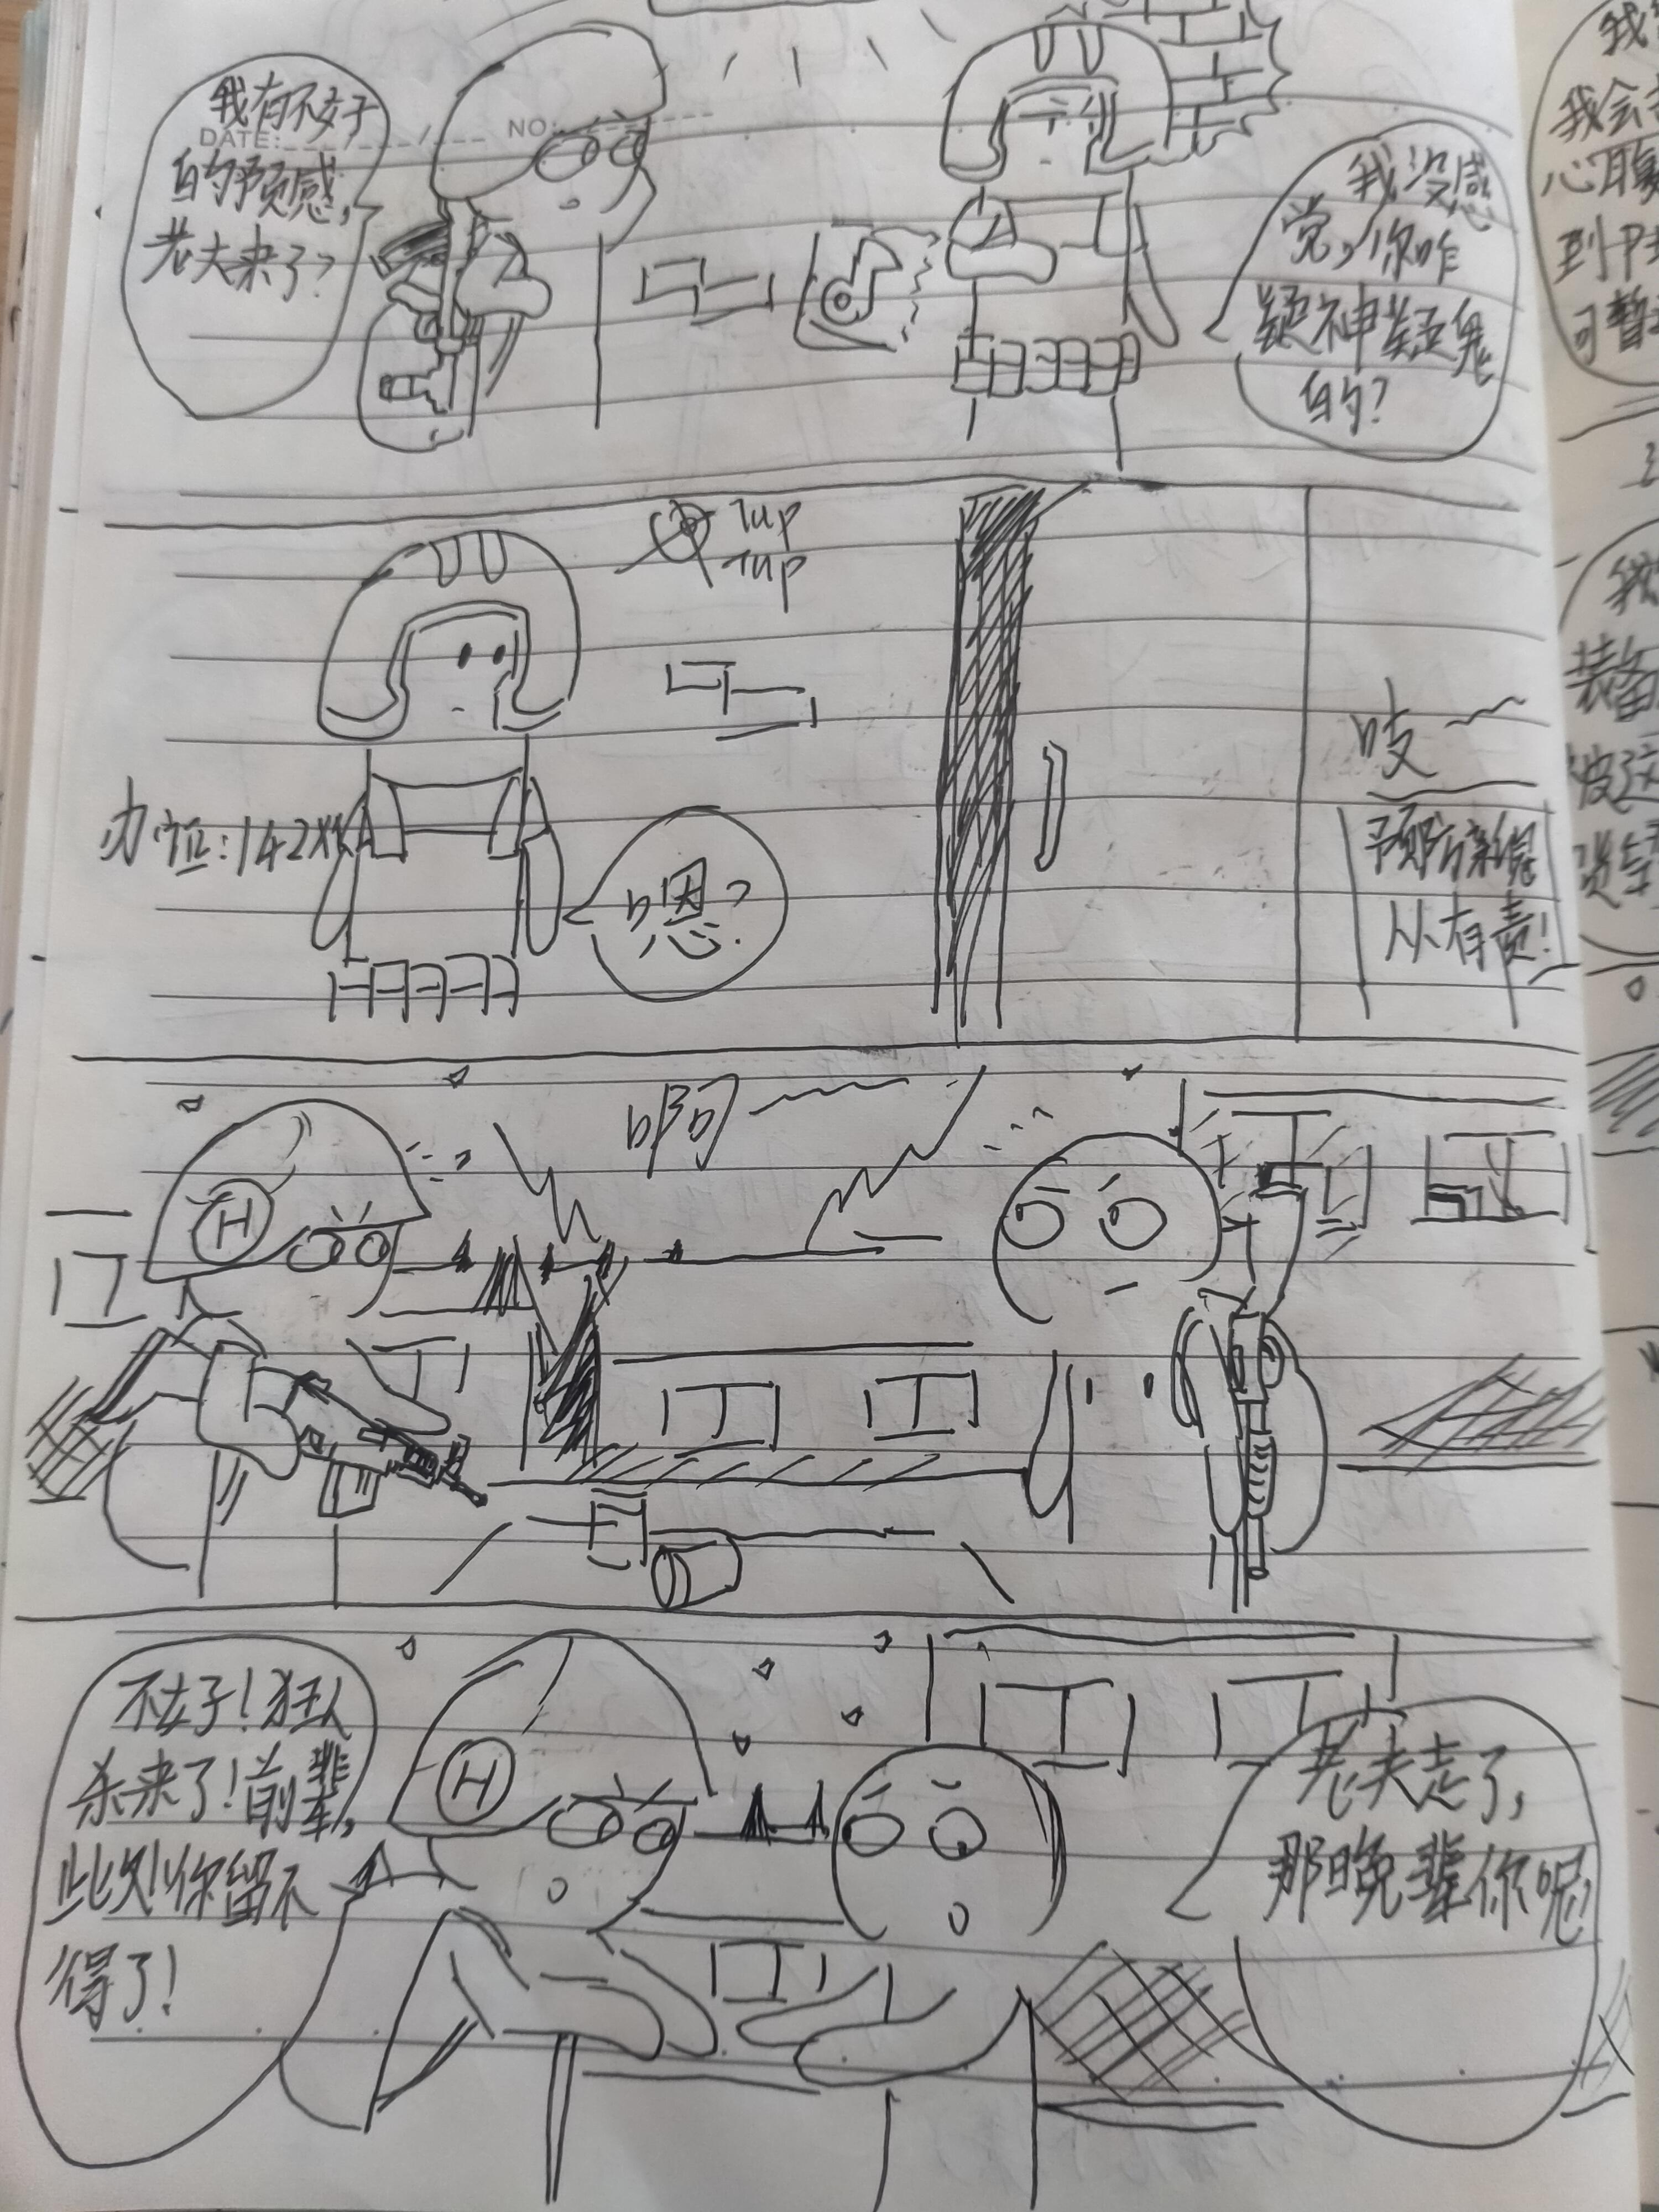 我有不好
DATE:
NO:
的预感,
老大来了?
我没感
觉,你咋
疑神疑鬼
的?
Tup
Tup
吱
嗯?
预防新冠
从有责!
啊
H
不好!狂人
杀来了!前辈,
此刻你留不
得了!
H
老夫走了,
那晚辈你呢?
我
我会
心
到
可暂
装备
被这